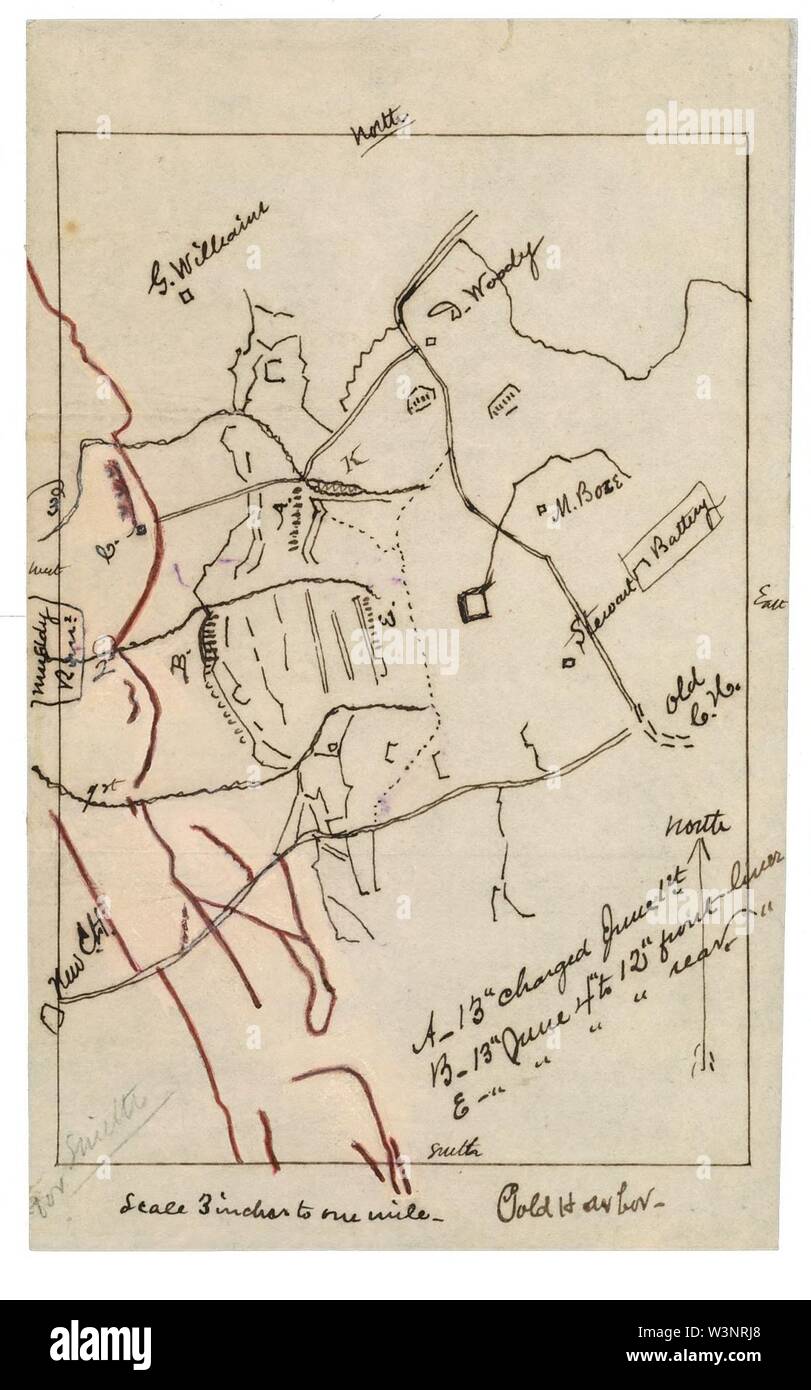 North
G. Williams
D. Woody
C
K
M. Boze
A.
C.
west
Stewart's Battery
East
Muddy
Run?
B.
E.
Old
C.H.
New C.H.
North
A - 13" charged June 1st
B - 13" June 4" to 12" front lines
E - " " " " rear "
South
for Smith
Scale 3 inches to one mile -
Cold Harbor -
alamy
Image ID: W3NRJ8
www.alamy.com